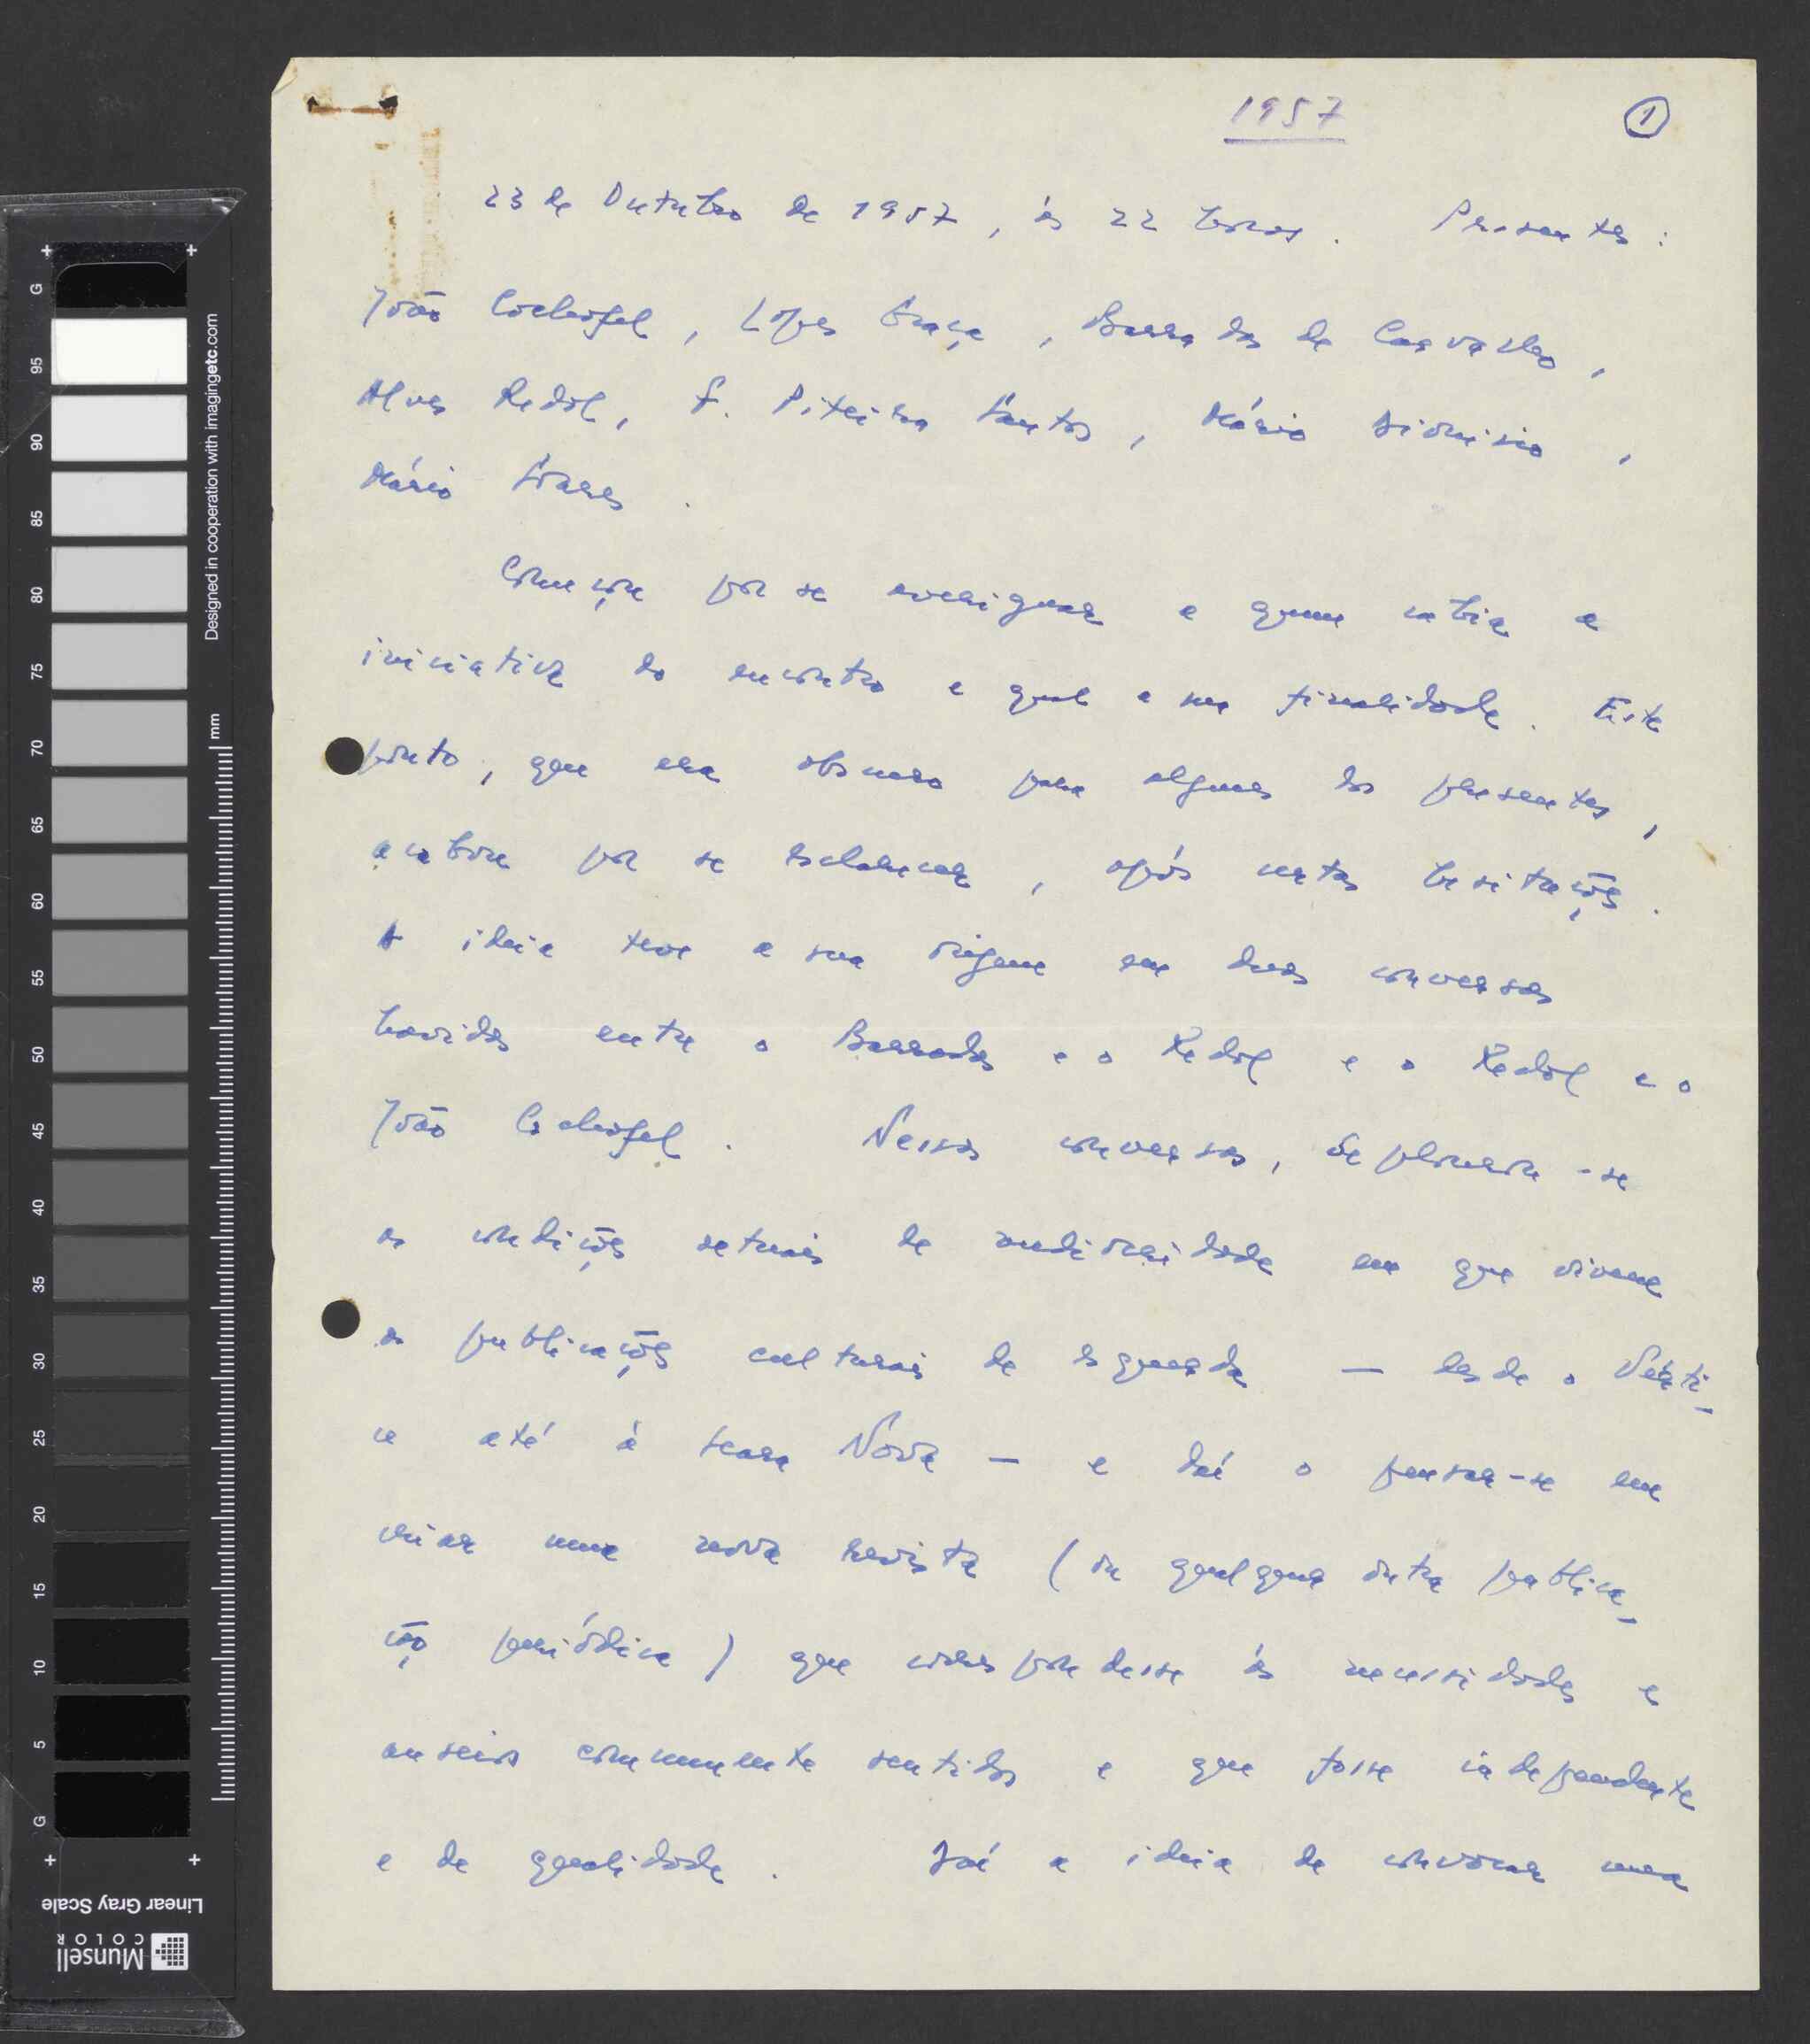 1957
1
23 de Outubro de 1957, às 22 horas. Presentes:
João Cochofel, Lopes Graça, Barradas de Carvalho,
Alves Redol, F. Piteira Santos, Mário Dionísio,
Mário Soares.
Começou por se averiguar a quem cabia a
iniciativa do encontro e qual a sua finalidade. Este
ponto, que era obscuro para alguns dos presentes,
acabou por se esclarecer, após certas hesitações.
A ideia teve a sua origem em duas conversas
havidas entre o Barradas e o Redol e o Redol e o
João Cochofel. Nessas conversas, deplorou-se
as condições actuais de mediocridade em que vivem
as publicações culturais de esquerda — desde o Vérti-
ce até à Seara Nova — e daí o pensar-se em
criar uma nova revista (ou qualquer outra publica-
ção periódica) que correspondesse às necessidades e
anseios comummente sentidos e que fosse independente
e de qualidade. Daí a ideia de convocar uma
G
95
90
85
80
75
70
65
60
55
50
45
40
35
30
25
20
15
10
5
G
mm
Designed in cooperation with imagingetc.com
Linear Gray Scale
Munsell
COLOR